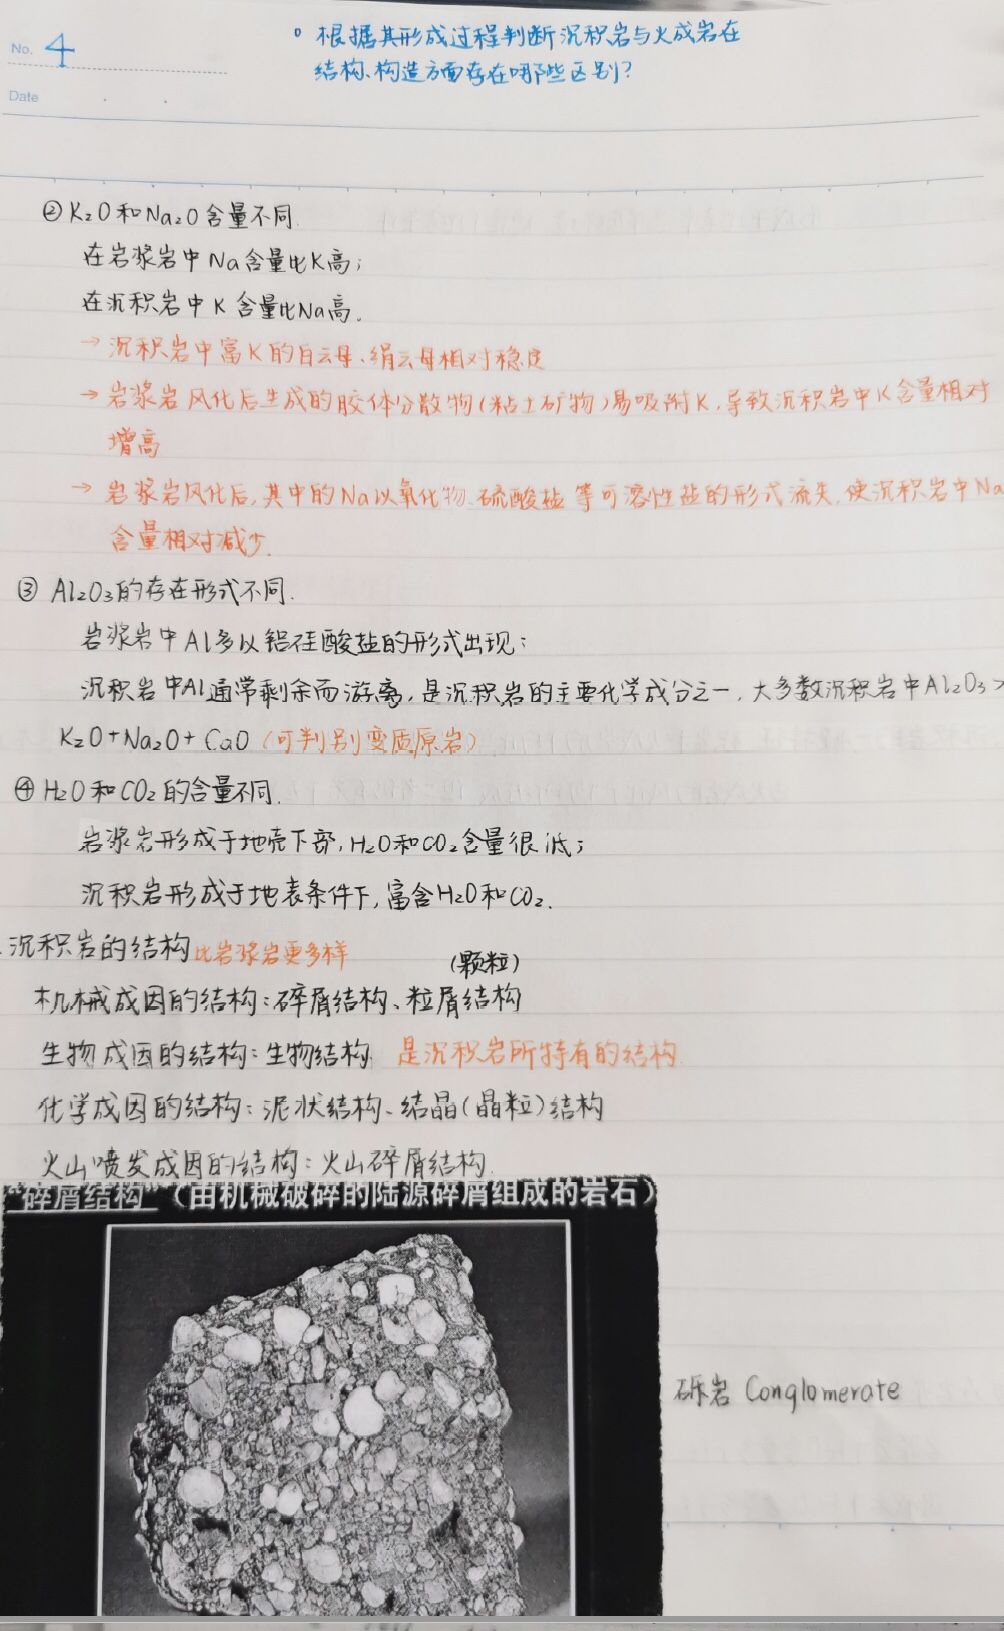 No. 4
Date
。根据其形成过程判断沉积岩与火成岩在
结构、构造方面存在哪些区别?
②K₂O和Na₂O含量不同.
在岩浆岩中Na含量比K高;
在沉积岩中K含量比Na高.
→沉积岩中富K的白云母、绢云母相对稳定
→岩浆岩风化后生成的胶体分散物(粘土矿物)易吸附K,导致沉积岩中K含量相对
增高
→岩浆岩风化后,其中的Na以氧化物、硫酸盐等可溶性盐的形式流失,使沉积岩中Na
含量相对减少.
③Al₂O₃的存在形式不同.
岩浆岩中Al多以铝硅酸盐的形式出现;
沉积岩中Al通常剩余而游离,是沉积岩的主要化学成分之一,大多数沉积岩中Al₂O₃>
K₂O+Na₂O+CaO(可判别变质原岩)
④H₂O和CO₂的含量不同.
岩浆岩形成于地壳下部,H₂O和CO₂含量很低;
沉积岩形成于地表条件下,富含H₂O和CO₂.
沉积岩的结构 比岩浆岩更多样
(颗粒)
机械成因的结构:碎屑结构、粒屑结构
生物成因的结构:生物结构 是沉积岩所特有的结构.
化学成因的结构:泥状结构、结晶(晶粒)结构
火山喷发成因的结构:火山碎屑结构.
"碎屑结构"(由机械破碎的陆源碎屑组成的岩石)
砾岩 Conglomerate